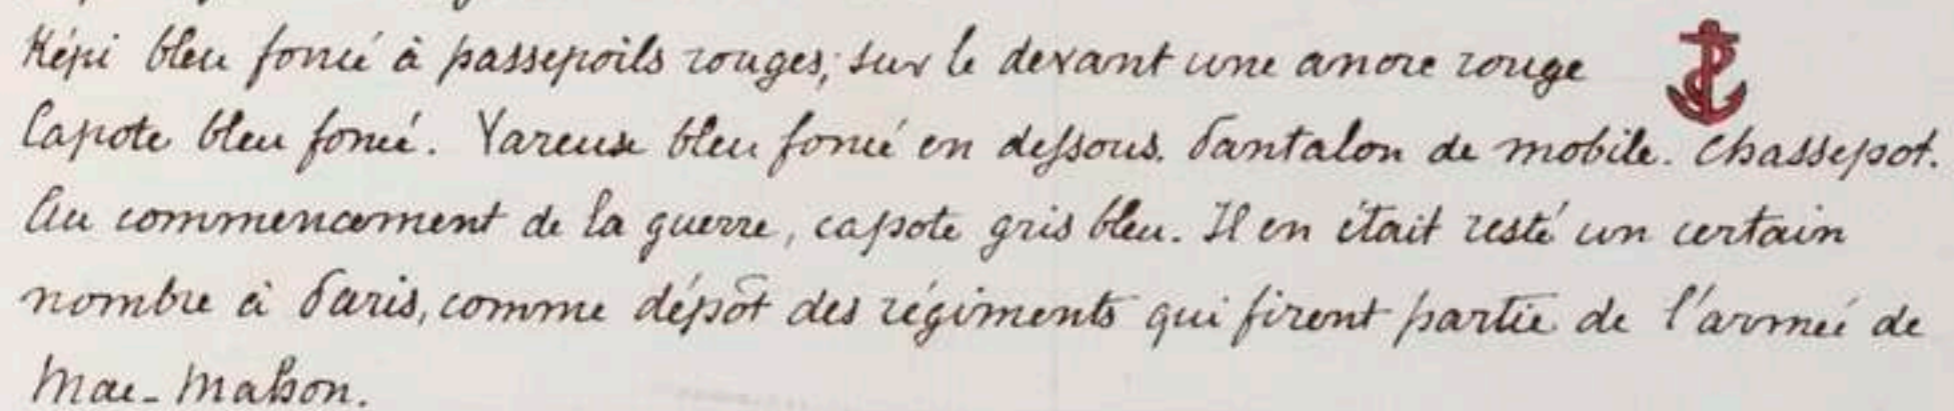 Képi bleu foncé à passepoils rouges; sur le devant une ancre rouge
Capote bleu foncé. Vareuse bleu foncé en dessous. Pantalon de mobile. Chassepot.
Au commencement de la guerre, capote gris bleu. Il en était resté un certain
nombre à Paris, comme dépôt des régiments qui firent partie de l'armée de
Mac-Mahon.